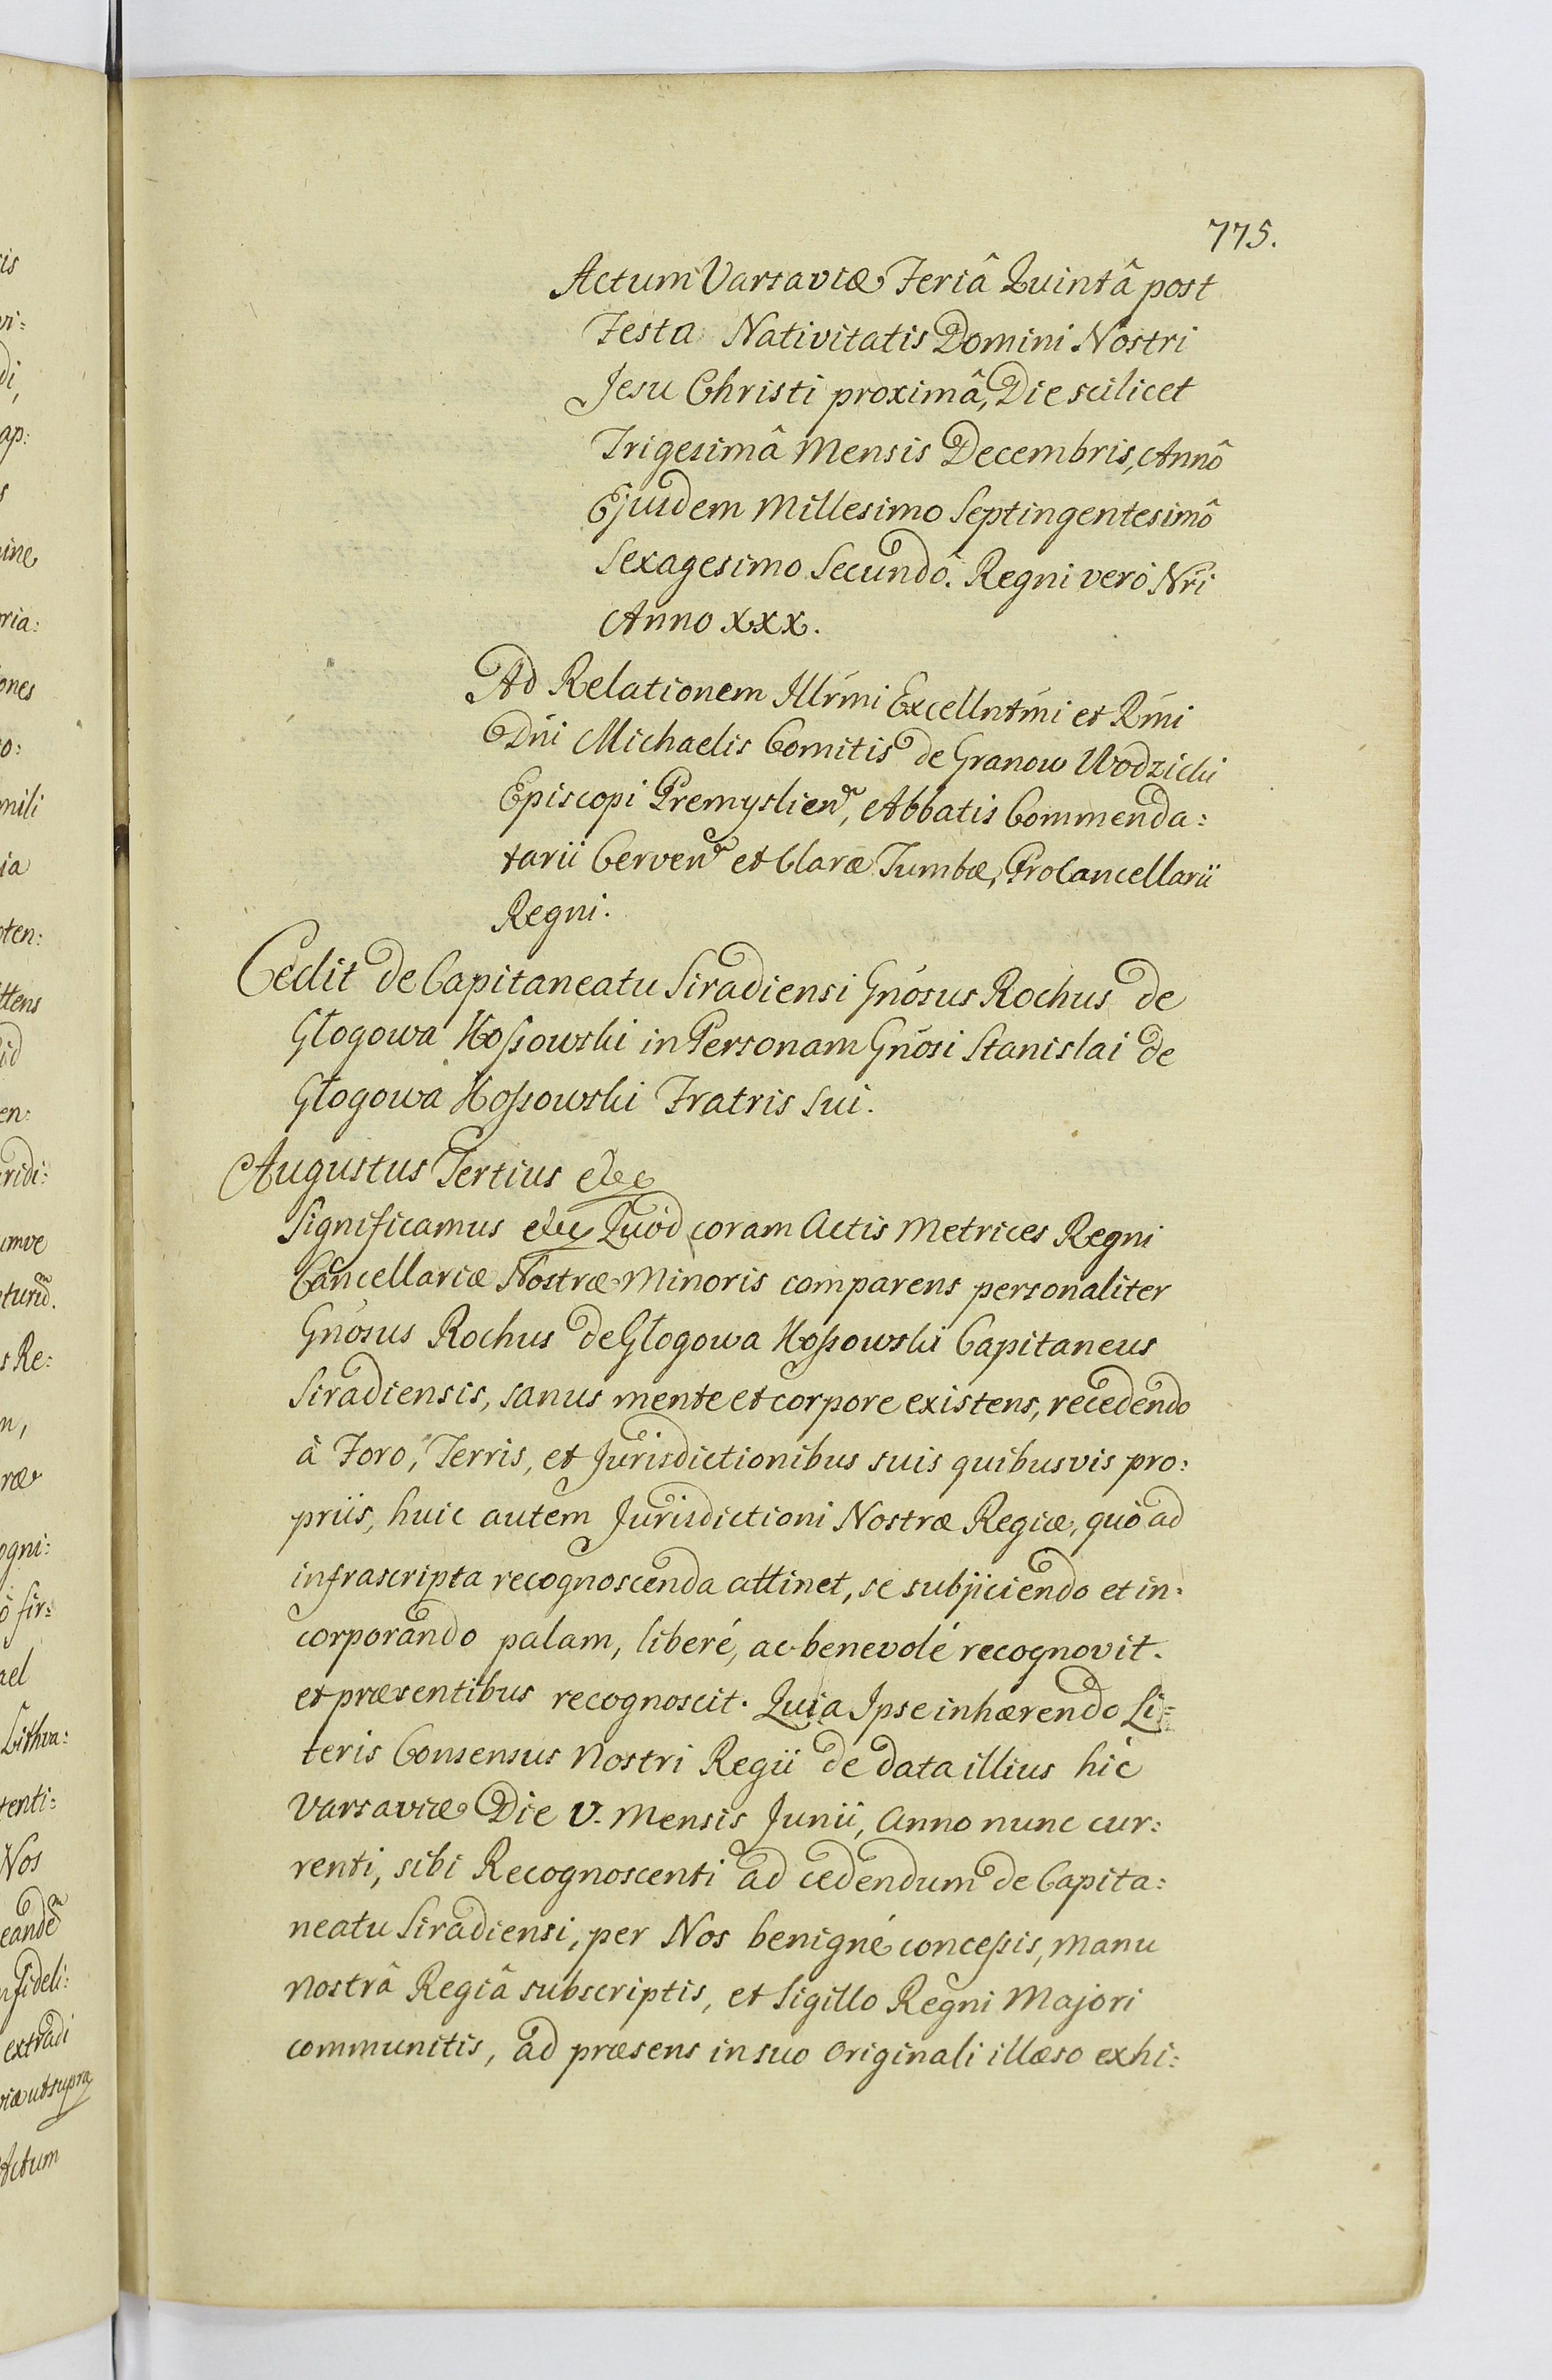 775.
Actum Varsaviæ Feriâ Quintâ post
Festa Nativitatis Domini Nostri
Jesu Christi proximâ, Die scilicet
Trigesimâ Mensis Decembris, Annô
Ejusdem Millesimo Septingentesimô
Sexagesimo Secundô. Regni verò Nri
Anno XXX.
Ad Relationem Illrmi Excellntmi et Rmi
Dni Michaelis Comitis de Granow Wodzicki
Episcopi Premyslien, Abbatis Commenda:
tarii Cerven et Claræ Tumbæ, ProCancellarii
Regni.
Cedit de Capitaneatu Siradiensi Gnosus Rochus de
Głogowa Kossowski in Personam Gnosi Stanislai de
Głogowa Kossowski Fratris Sui.
Augustus Tertius etc
Significamus etc Quod coram Actis Metrices Regni
Cancellariæ Nostræ Minoris comparens personaliter
Gnosus Rochus de Głogowa Kossowski Capitaneus
Siradiensis, sanus mente et corpore existens, recedendo
à Foro, Terris, et Jurisdictionibus suis quibusvis pro:
priis, huic autem Jurisdictioni Nostræ Regiæ, quò ad
infrascripta recognoscenda attinet, se subjiciendo et in:
corporando palam, liberé, ac benevolé recognovit.
et præsentibus recognoscit. Quia Ipse inhærendo Li:
teris Consensus Nostri Regii de data illius hic
Varsaviæ Die V. Mensis Junii, Anno nunc cur:
renti, sibi Recognoscenti ad cedendum de Capita:
neatu Siradiensi, per Nos benigné concessis, manu
nostrâ Regiâ subscriptis, et Sigillo Regni Majori
communitis, ad præsens in suo Originali illæso exhi: